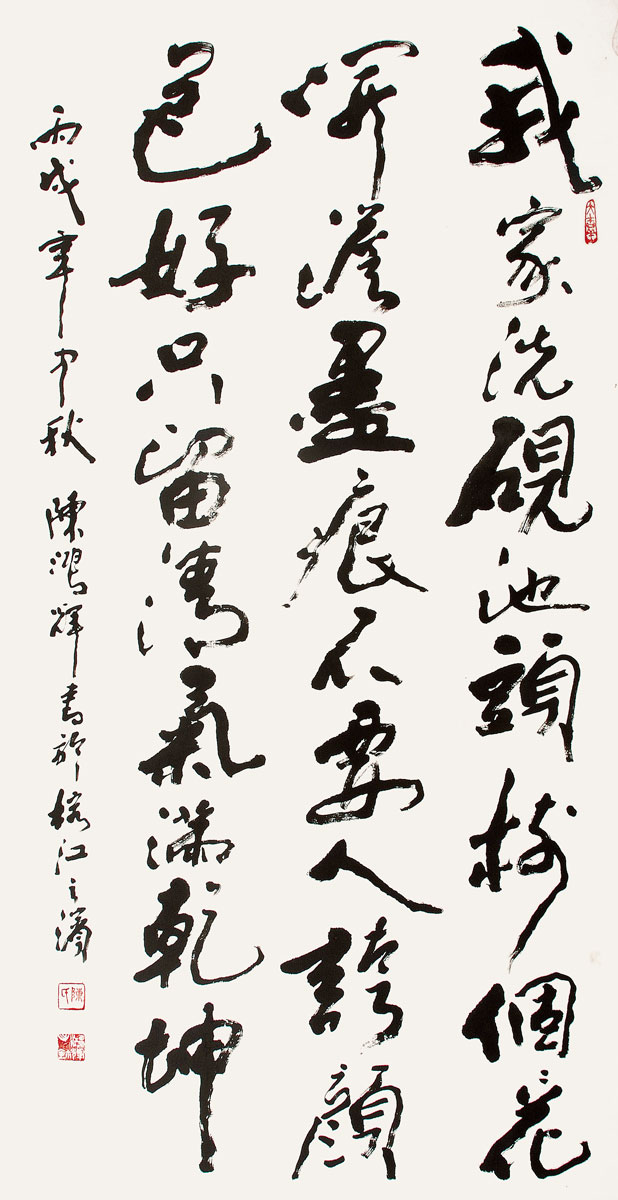 我家洗硯池頭樹個々花
開澹墨痕不要人誇顏
色好只留清氣滿乾坤
丙戌年中秋 陳鴻輝書於榕江之濱
陳氏